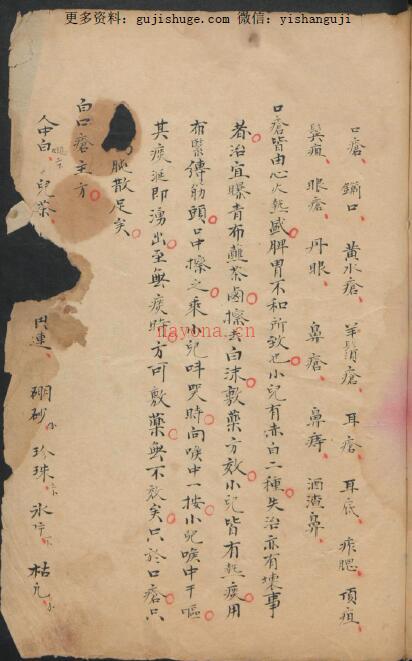 更多资料: gujishuge.com 微信: yishanguji
口瘡 鎖口 黄水瘡 羊鬍瘡 耳瘡 耳底 痄腮 頂疽
鬢疽 眼瘡 丹眼 鼻瘡 鼻痔 酒渣鼻
口瘡皆由心火熱盛脾胃不和所致也小兒有赤白二種失治亦有壞事
者治宜曝青布蘸茶滷擦去白沫敷藥方效小兒皆有熱痰用
布緊縛筋頭口中擦之乘小兒呌哭時向喉中一按小兒喉中干嘔
其痰涎即湧出至無痰時方可敷藥無不效矣只於口瘡只
脏散足矣
白口瘡主方
人中白 兒茶 連 硼砂 珍珠 氷片 枯凡
nayona.cn